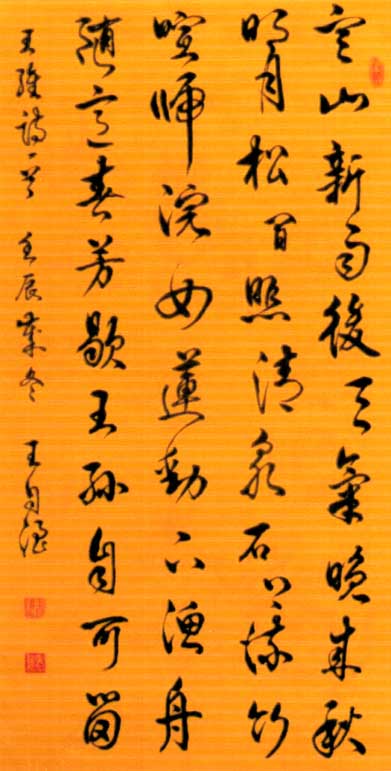 空山新雨後天氣晚來秋
明月松間照清泉石上流竹
喧歸浣女蓮動下漁舟
隨意春芳歇王孫自可留
王維詩一首 壬辰歲冬 王自